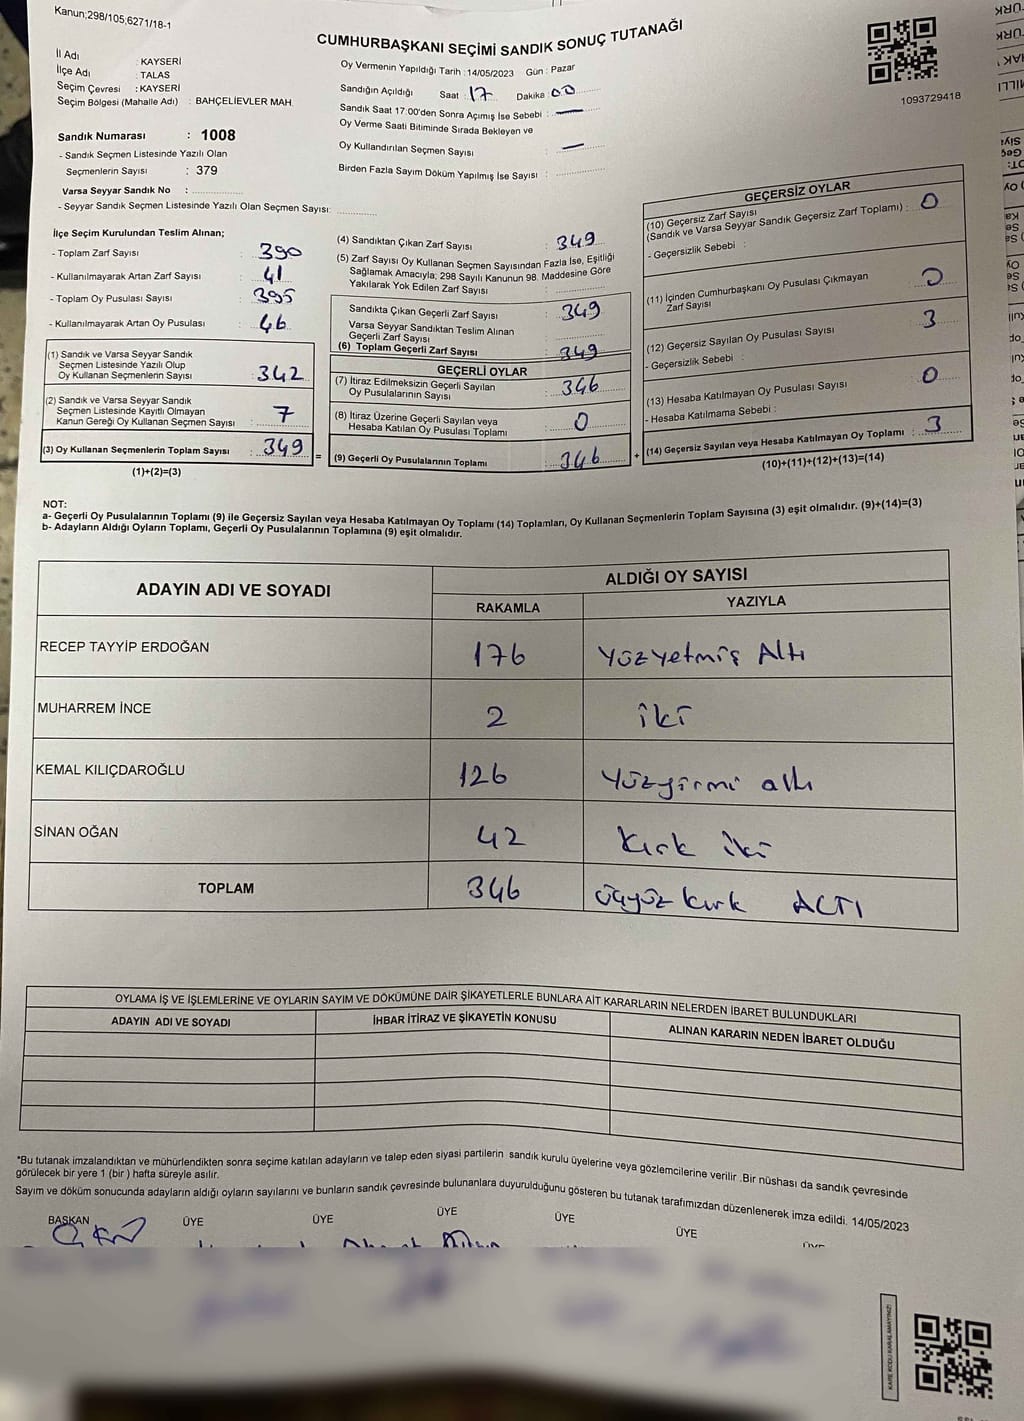 Kanun;298/105;6271/18-1
CUMHURBAŞKANI SEÇİMİ SANDIK SONUÇ TUTANAĞI
İl Adı : KAYSERİ
İlçe Adı : TALAS
Seçim Çevresi : KAYSERİ
Seçim Bölgesi (Mahalle Adı) : BAHÇELİEVLER MAH.
Sandık Numarası : 1008
- Sandık Seçmen Listesinde Yazılı Olan
Seçmenlerin Sayısı : 379
Varsa Seyyar Sandık No :
- Seyyar Sandık Seçmen Listesinde Yazılı Olan Seçmen Sayısı:
Oy Vermenin Yapıldığı Tarih :14/05/2023 Gün : Pazar
Sandığın Açıldığı Saat : 17 Dakika : 00
Sandık Saat 17:00'den Sonra Açımış İse Sebebi : —
Oy Verme Saati Bitiminde Sırada Bekleyen ve
Oy Kullandırılan Seçmen Sayısı : —
Birden Fazla Sayım Döküm Yapılmış İse Sayısı :
1093729418
İlçe Seçim Kurulundan Teslim Alınan;
- Toplam Zarf Sayısı : 390
- Kullanılmayarak Artan Zarf Sayısı : 41
- Toplam Oy Pusulası Sayısı : 395
- Kullanılmayarak Artan Oy Pusulası : 46
(1) Sandık ve Varsa Seyyar Sandık
Seçmen Listesinde Yazılı Olup
Oy Kullanan Seçmenlerin Sayısı : 342
(2) Sandık ve Varsa Seyyar Sandık
Seçmen Listesinde Kayıtlı Olmayan
Kanun Gereği Oy Kullanan Seçmen Sayısı : 7
(3) Oy Kullanan Seçmenlerin Toplam Sayısı : 349
(1)+(2)=(3)
=
(4) Sandıktan Çıkan Zarf Sayısı : 349
(5) Zarf Sayısı Oy Kullanan Seçmen Sayısından Fazla İse, Eşitliği
Sağlamak Amacıyla; 298 Sayılı Kanunun 98. Maddesine Göre
Yakılarak Yok Edilen Zarf Sayısı :
Sandıkta Çıkan Geçerli Zarf Sayısı : 349
Varsa Seyyar Sandıktan Teslim Alınan
Geçerli Zarf Sayısı :
(6) Toplam Geçerli Zarf Sayısı : 349
GEÇERLİ OYLAR
(7) İtiraz Edilmeksizin Geçerli Sayılan
Oy Pusulalarının Sayısı : 346
(8) İtiraz Üzerine Geçerli Sayılan veya
Hesaba Katılan Oy Pusulası Toplamı : 0
(9) Geçerli Oy Pusulalarının Toplamı : 346
+
GEÇERSİZ OYLAR
(10) Geçersiz Zarf Sayısı
(Sandık ve Varsa Seyyar Sandık Geçersiz Zarf Toplamı) : 0
- Geçersizlik Sebebi :
(11) İçinden Cumhurbaşkanı Oy Pusulası Çıkmayan
Zarf Sayısı : 0
(12) Geçersiz Sayılan Oy Pusulası Sayısı : 3
- Geçersizlik Sebebi :
(13) Hesaba Katılmayan Oy Pusulası Sayısı : 0
- Hesaba Katılmama Sebebi :
(14) Geçersiz Sayılan veya Hesaba Katılmayan Oy Toplamı : 3
(10)+(11)+(12)+(13)=(14)
NOT:
a- Geçerli Oy Pusulalarının Toplamı (9) ile Geçersiz Sayılan veya Hesaba Katılmayan Oy Toplamı (14) Toplamları, Oy Kullanan Seçmenlerin Toplam Sayısına (3) eşit olmalıdır. (9)+(14)=(3)
b- Adayların Aldığı Oyların Toplamı, Geçerli Oy Pusulalarının Toplamına (9) eşit olmalıdır.
ADAYIN ADI VE SOYADI ALDIĞI OY SAYISI
RAKAMLA YAZIYLA
RECEP TAYYİP ERDOĞAN 176 Yüzyetmiş Altı
MUHARREM İNCE 2 iki
KEMAL KILIÇDAROĞLU 126 Yüzyirmi altı
SİNAN OĞAN 42 Kırk iki
TOPLAM 346 üçyüz kırk ALTI
OYLAMA İŞ VE İŞLEMLERİNE VE OYLARIN SAYIM VE DÖKÜMÜNE DAİR ŞİKAYETLERLE BUNLARA AİT KARARLARIN NELERDEN İBARET BULUNDUKLARI
ADAYIN ADI VE SOYADI İHBAR İTİRAZ VE ŞİKAYETİN KONUSU ALINAN KARARIN NEDEN İBARET OLDUĞU
*Bu tutanak imzalandıktan ve mühürlendikten sonra seçime katılan adayların ve talep eden siyasi partilerin sandık kurulu üyelerine veya gözlemcilerine verilir .Bir nüshası da sandık çevresinde
görülecek bir yere 1 (bir ) hafta süreyle asılır.
Sayım ve döküm sonucunda adayların aldığı oyların sayılarını ve bunların sandık çevresinde bulunanlara duyurulduğunu gösteren bu tutanak tarafımızdan düzenlenerek imza edildi. 14/05/2023
BAŞKAN ÜYE ÜYE ÜYE ÜYE ÜYE
KARE KODU KARALAMAYINIZ!